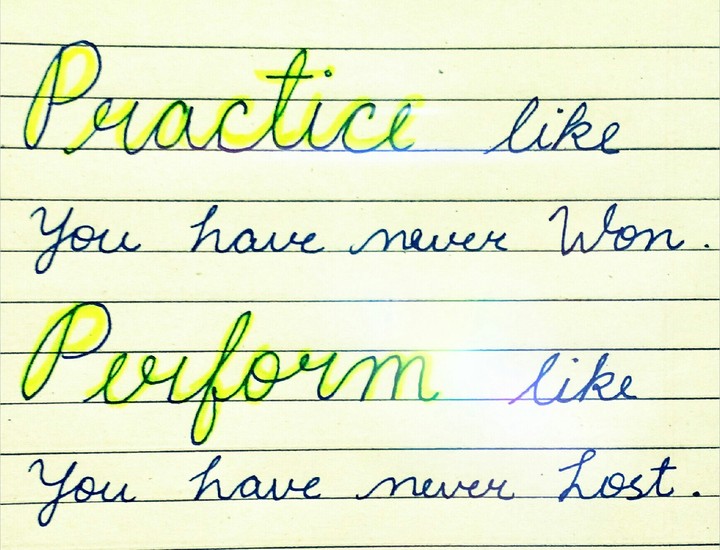 Practice like
You have never Won.
Perform like
You have never Lost.